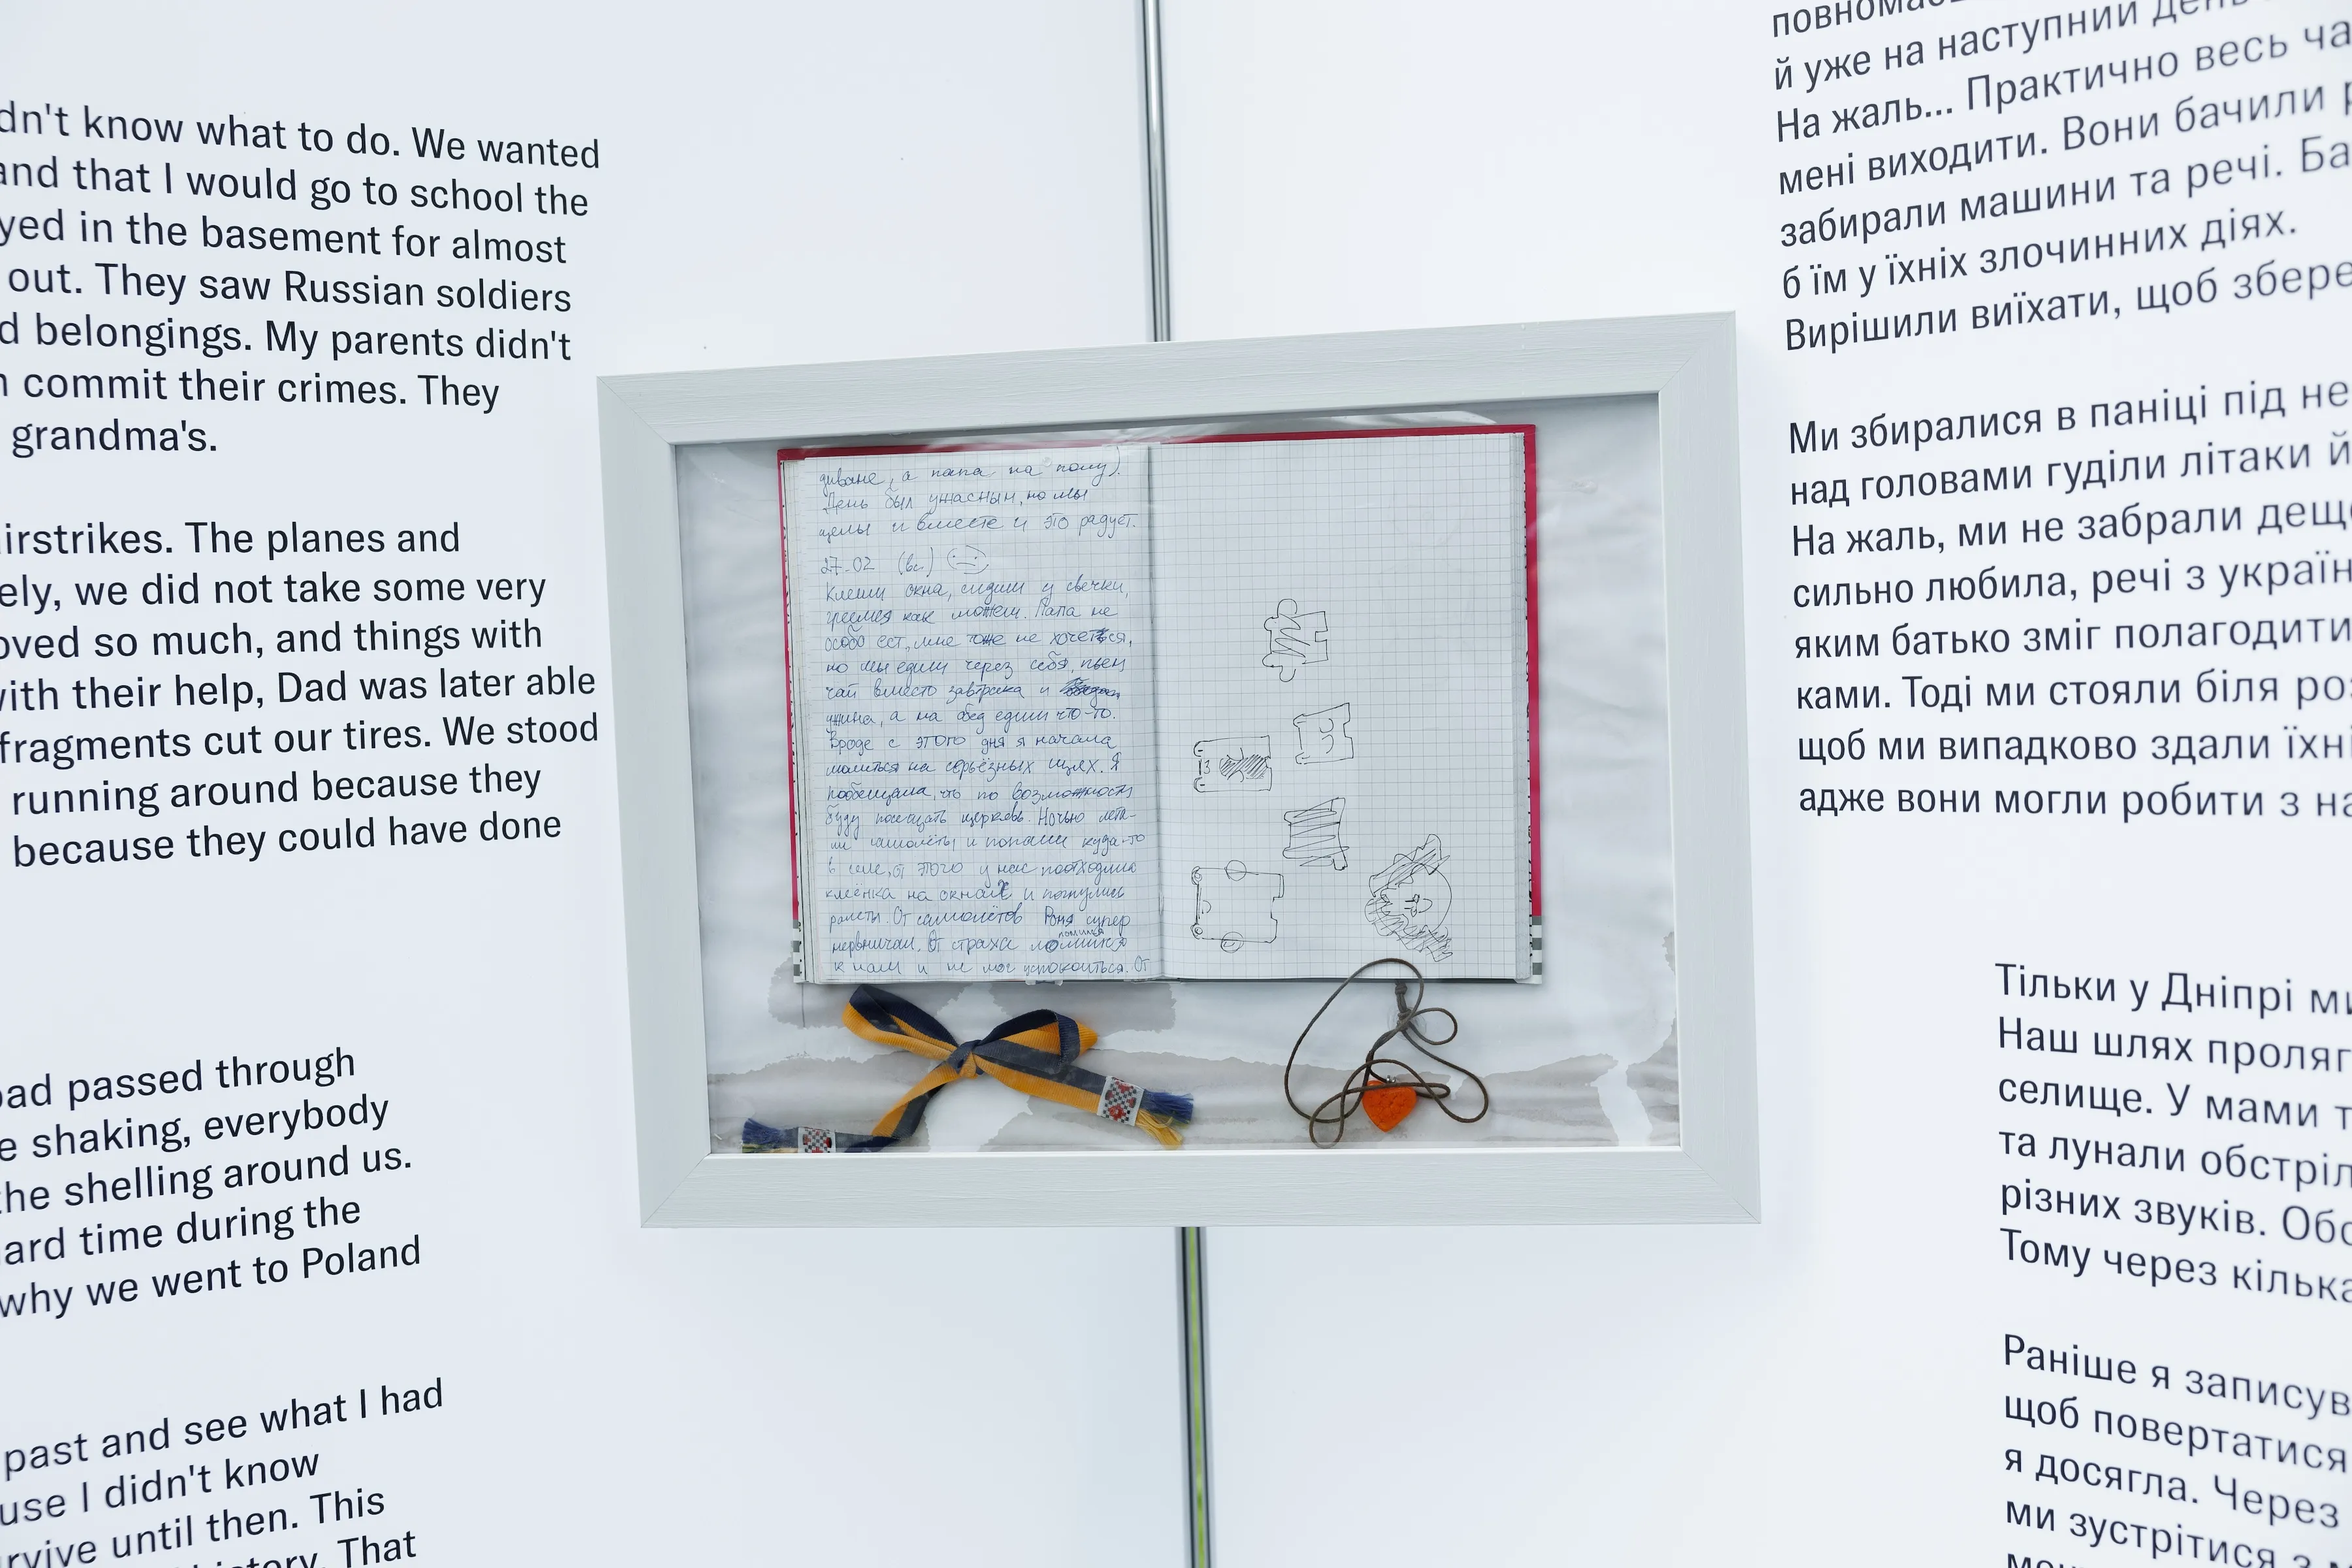 dn't know what to do. We wanted
and that I would go to school the
yed in the basement for almost
out. They saw Russian soldiers
d belongings. My parents didn't
commit their crimes. They
grandma's.
irstrikes. The planes and
ely, we did not take some very
oved so much, and things with
with their help, Dad was later able
fragments cut our tires. We stood
running around because they
because they could have done
oad passed through
e shaking, everybody
the shelling around us.
hard time during the
why we went to Poland
past and see what I had
use I didn't know
rvive until then. This
history. That
диване, а папа на полу).
День был ужасным, но мы
целы и вместе и это радует.
27.02 (вс)
Клеим окна, сидим у свечки,
греемся как можем. Папа не
особо ест, мне тоже не хочется,
но мы едим через себя, пьем
чай вместо завтрака и
ужина, а на обед едим что-то.
Вроде с этого дня я начала
молиться на серьёзных щах. Я
пообещала, что по возможности
буду посещать церковь. Ночью лета-
ли самолёты и попали куда-то
в селе, от этого у нас
клеёнка на окнах и погнулись
ролеты. От самолётов Роня супер
нервничал. От страха ломился
к нам и не мог успокоиться. От
13
повномас
й уже на наступний день
На жаль... Практично весь ча
мені виходити. Вони бачили р
забирали машини та речі. Ба
б їм у їхніх злочинних діях.
Вирішили виїхати, щоб збере
Ми збиралися в паніці під не
над головами гуділи літаки й
На жаль, ми не забрали дещо
сильно любила, речі з україн
яким батько зміг полагодити
ками. Тоді ми стояли біля роз
щоб ми випадково здали їхні
адже вони могли робити з на
Тільки у Дніпрі ми
Наш шлях проляг
селище. У мами т
та лунали обстріл
різних звуків. Обс
Тому через кілька
Раніше я записув
щоб повертатися
я досягла. Через
ми зустрітися з м